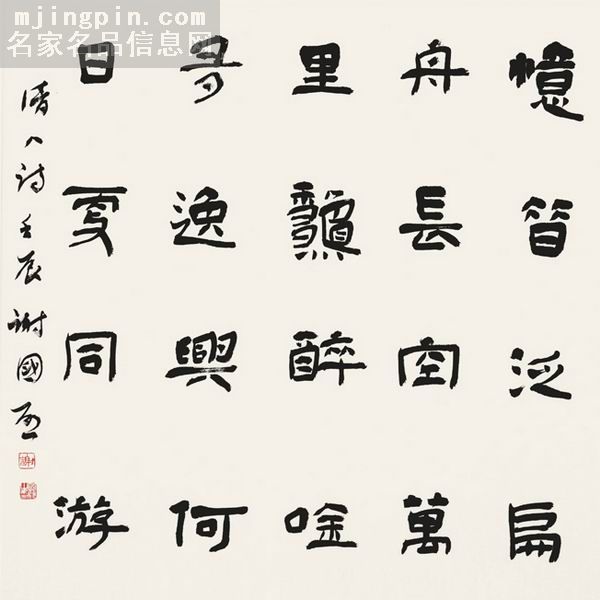 mjingpin.com
名家名品信息网
憶昔泛扁
舟長空萬
里醉唫
逸興何
日更同游
清人詩壬辰謝國